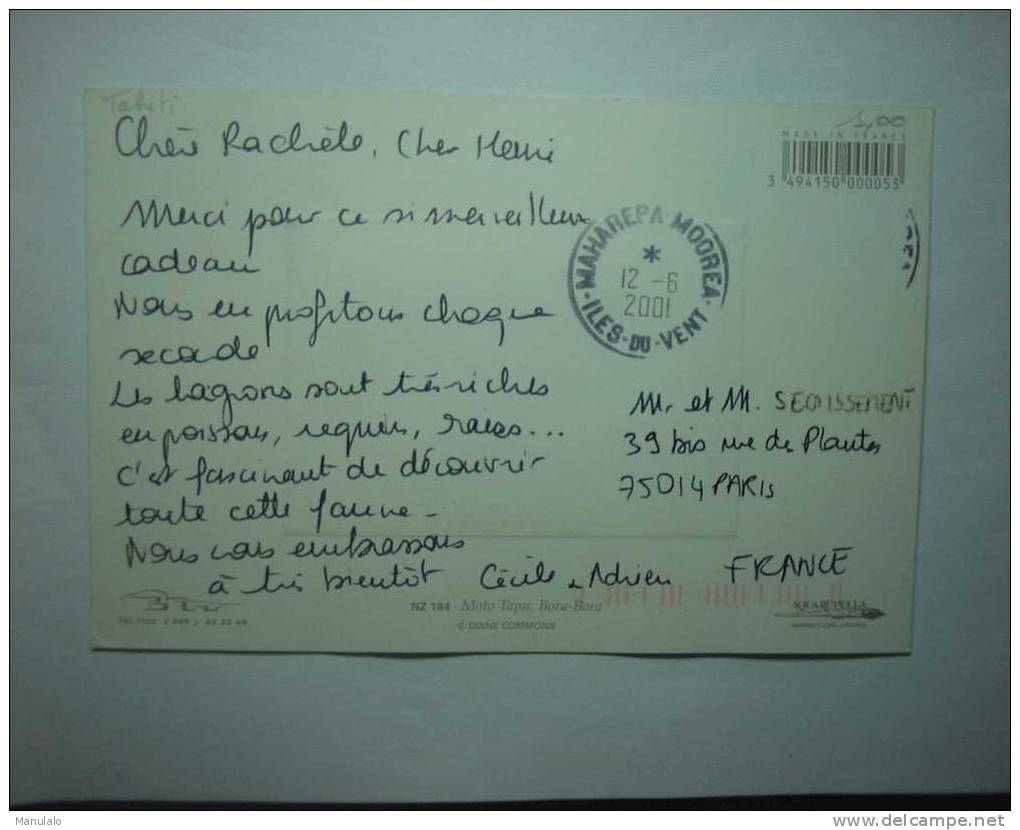 Tahiti
1,00
MADE IN FRANCE
3 494150 000053
Chère Rachèle, Cher Henri
Merci pour ce si merveilleux
cadeau
Nous en profitons chaque
seconde
Les lagons sont très riches
en poissons, requins, raies...
C'est fascinant de découvrir
toute cette faune -
Nous vous embrassons
à très bientôt Cécile & Adrien
MAHAREPA-MOOREA
*
12 -6
2001
ILES-DU-VENT
Mr et M.
39 bis rue des Plantes
75014 PARIS
FRANCE
NZ 184 - Moto Tapu, Bora-Bora
© DIANE COMMONS
AQUARUPELLA
Manulalo
www.delcampe.net